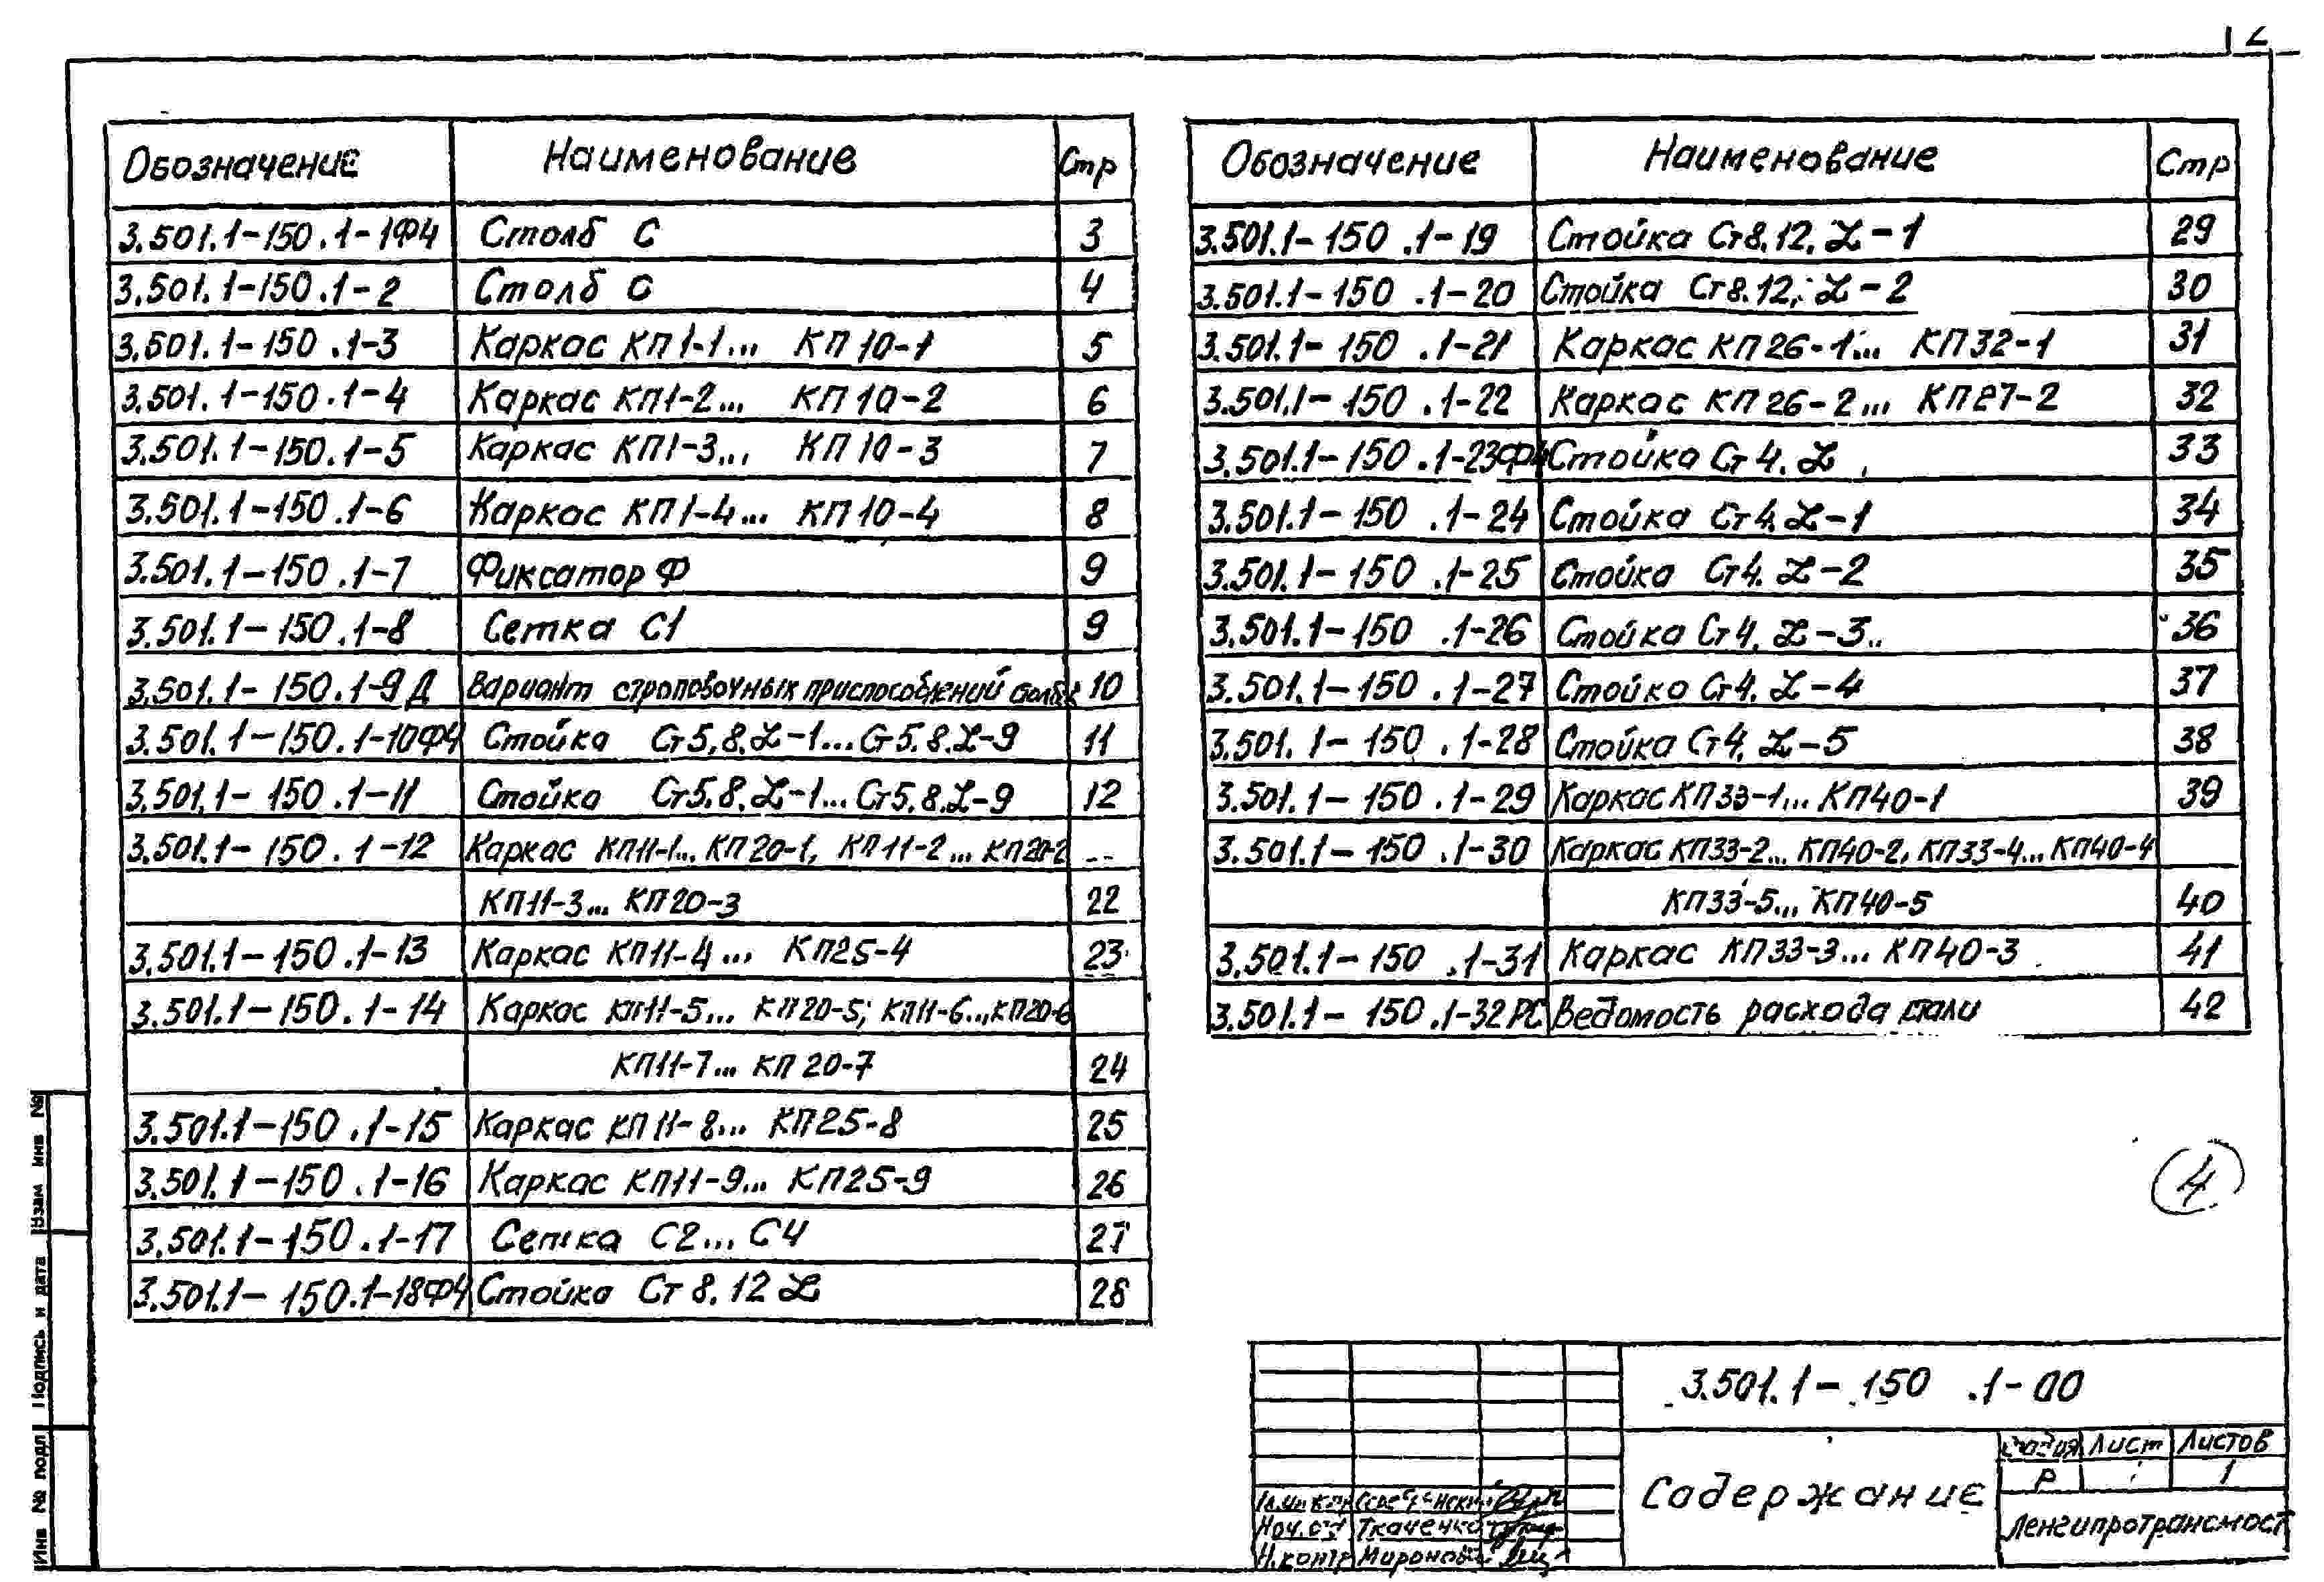 2
Обозначение Наименование Стр
3.501.1-150.1-1Ф4 Столб С 3
3.501.1-150.1-2 Столб С 4
3.501.1-150.1-3 Каркас КП1-1... КП10-1 5
3.501.1-150.1-4 Каркас КП1-2... КП10-2 6
3.501.1-150.1-5 Каркас КП1-3... КП10-3 7
3.501.1-150.1-6 Каркас КП1-4... КП10-4 8
3.501.1-150.1-7 Фиксатор Ф 9
3.501.1-150.1-8 Сетка С1 9
3.501.1-150.1-9Д Вариант строповочных приспособлений 10
3.501.1-150.1-10Ф4 Стойка Ст5.8.L-1...Ст5.8.L-9 11
3.501.1-150.1-11 Стойка Ст5.8.L-1...Ст5.8.L-9 12
3.501.1-150.1-12 Каркас КП11-1... КП20-1, КП11-2... КП20-2
КП11-3... КП20-3 22
3.501.1-150.1-13 Каркас КП11-4... КП25-4 23
3.501.1-150.1-14 Каркас КП11-5... КП20-5; КП11-6...КП20-6
КП11-7... КП20-7 24
3.501.1-150.1-15 Каркас КП11-8... КП25-8 25
3.501.1-150.1-16 Каркас КП11-9... КП25-9 26
3.501.1-150.1-17 Сетка С2... С4 27
3.501.1-150.1-18Ф4 Стойка Ст8.12 L 28
Обозначение Наименование Стр
3.501.1-150.1-19 Стойка Ст8.12.L-1 29
3.501.1-150.1-20 Стойка Ст8.12.L-2 30
3.501.1-150.1-21 Каркас КП26-1... КП32-1 31
3.501.1-150.1-22 Каркас КП26-2... КП27-2 32
3.501.1-150.1-23Ф4 Стойка Ст4.L 33
3.501.1-150.1-24 Стойка Ст4.L-1 34
3.501.1-150.1-25 Стойка Ст4.L-2 35
3.501.1-150.1-26 Стойка Ст4.L-3 36
3.501.1-150.1-27 Стойка Ст4.L-4 37
3.501.1-150.1-28 Стойка Ст4.L-5 38
3.501.1-150.1-29 Каркас КП33-1... КП40-1 39
3.501.1-150.1-30 Каркас КП33-2... КП40-2, КП33-4... КП40-4
КП33-5... КП40-5 40
3.501.1-150.1-31 Каркас КП33-3... КП40-3 41
3.501.1-150.1-32РС Ведомость расхода стали 42
4
Взам инв №
Подпись и дата
Инв № подл
3.501.1-150.1-00
Содержание
Стадия Лист Листов
Р 1
Ленгипротрансмост
Нач.отд Ткаченко
Н.контр Миронова